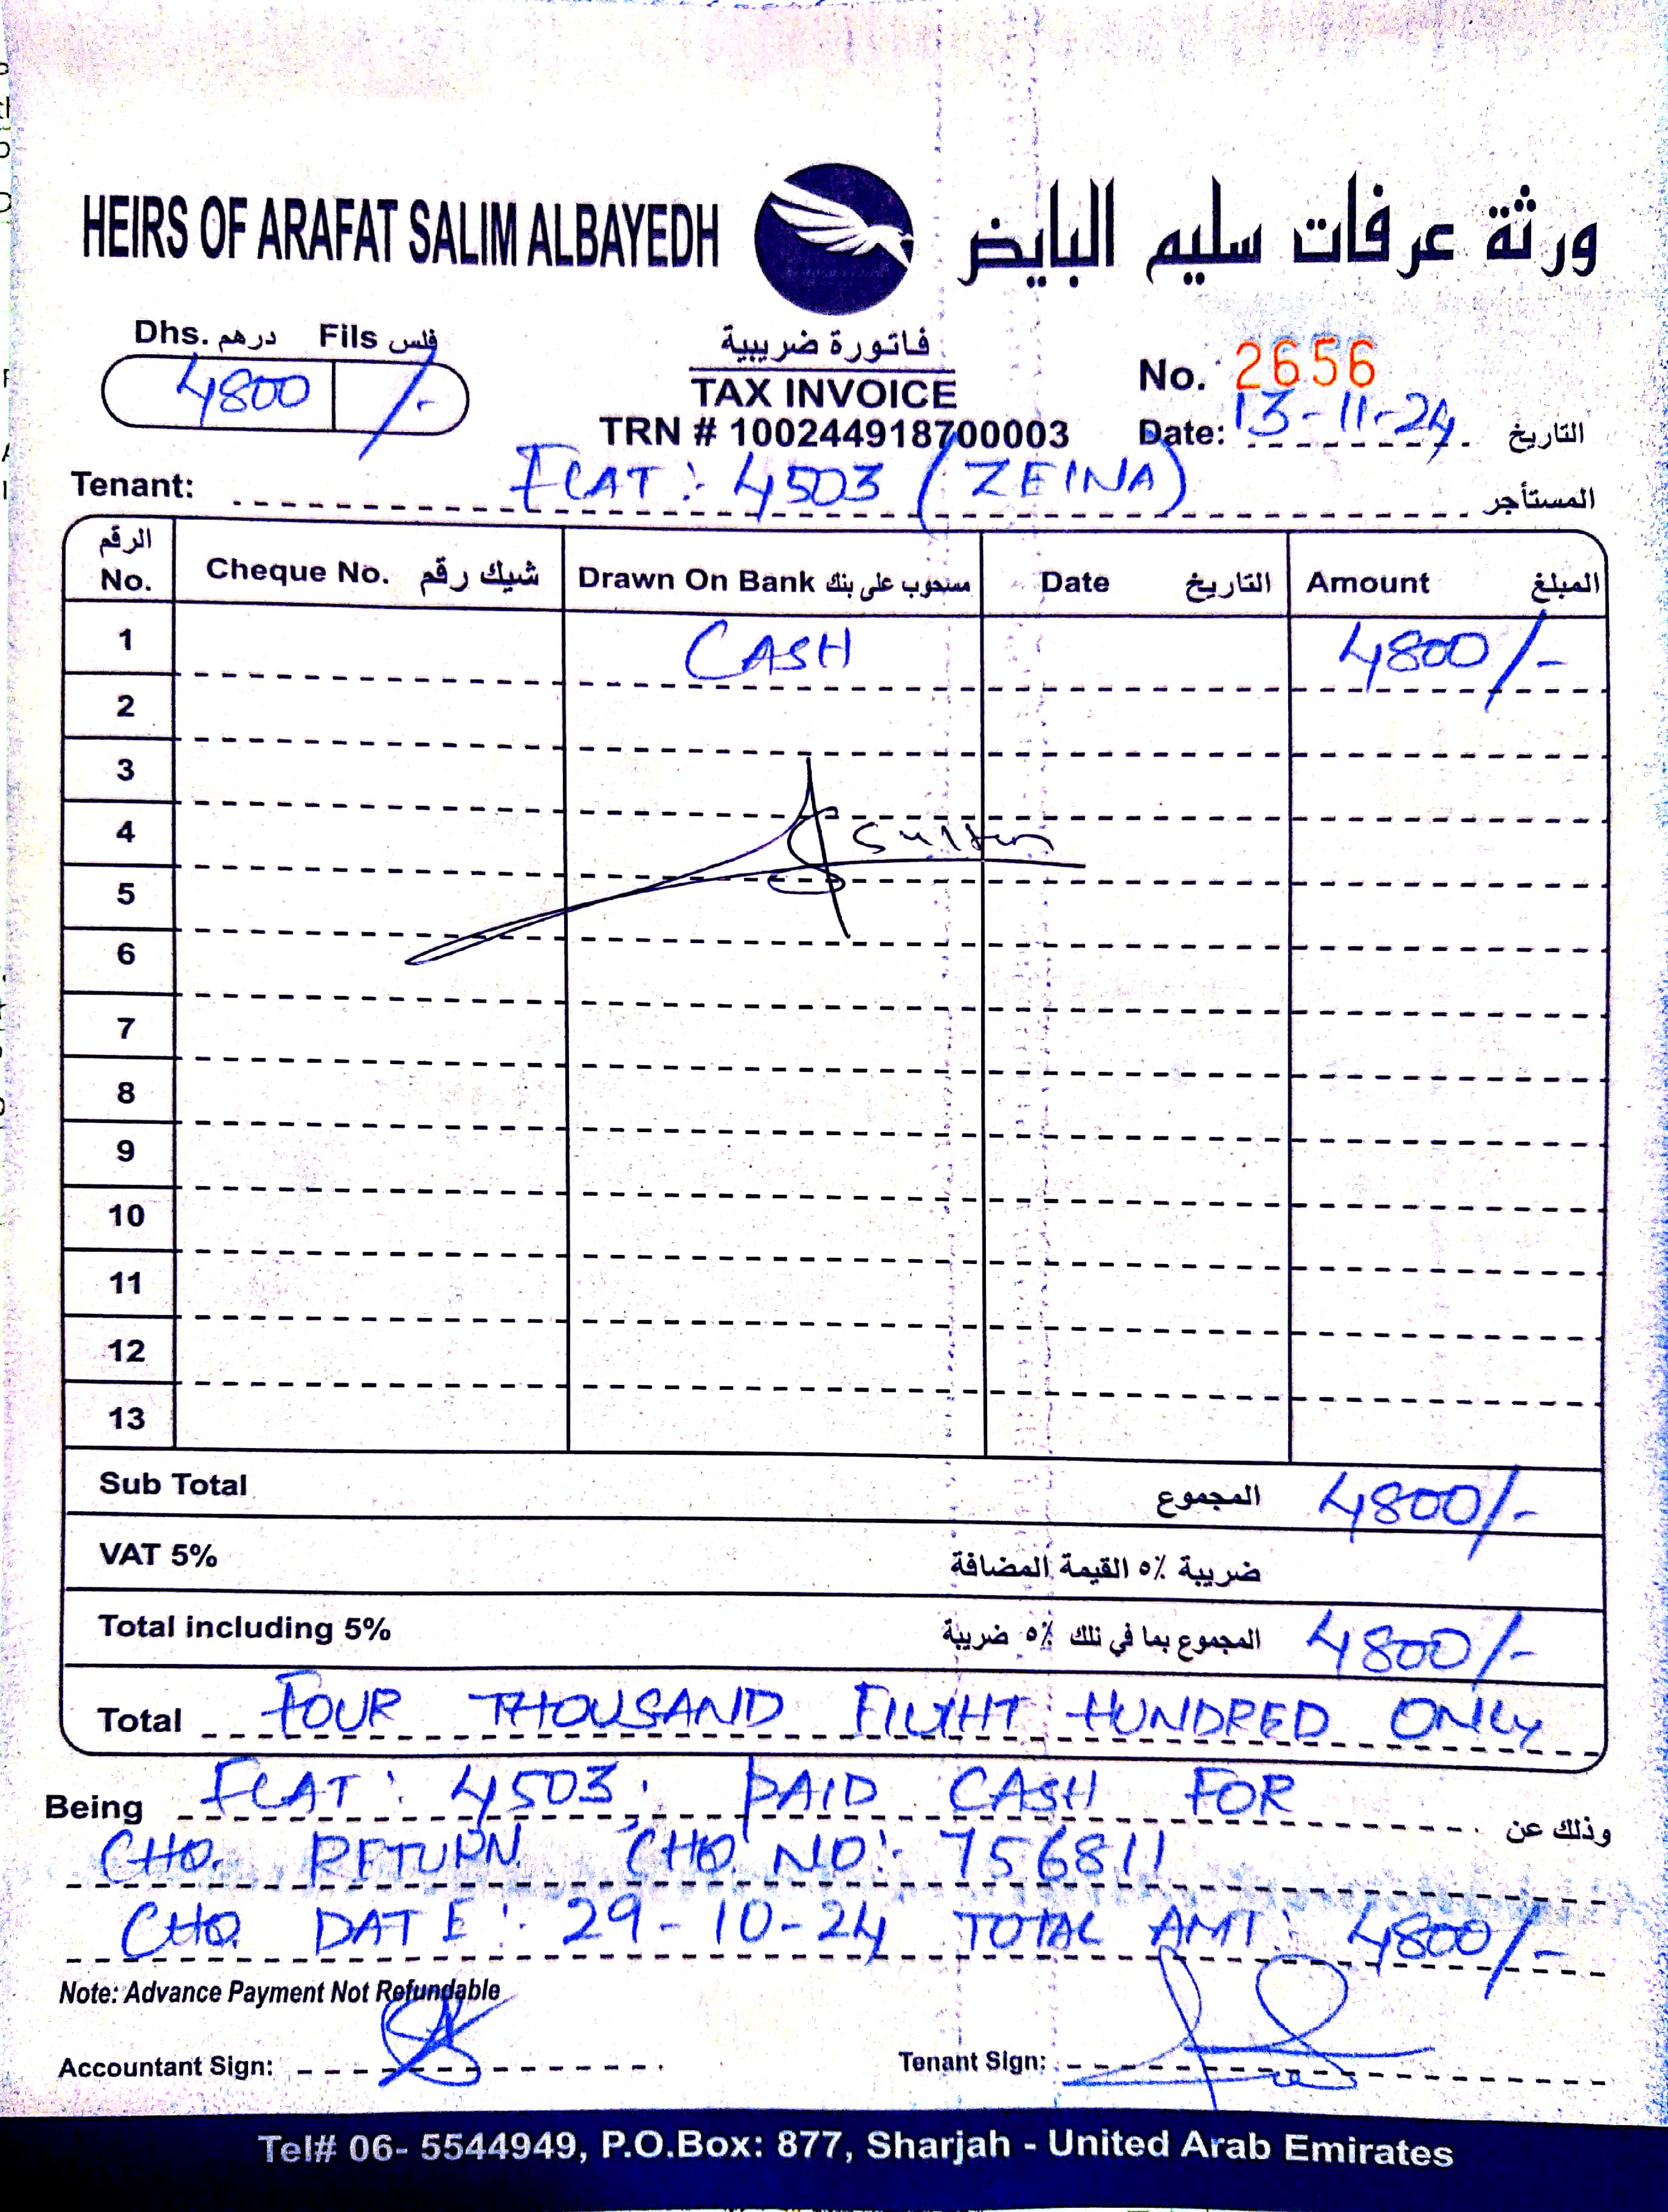 HEIRS OF ARAFAT SALIM ALBAYEDH ورثة عرفات سليم البايض
Dhs. درهم Fils فلس
4800 /-
فاتورة ضريبية
TAX INVOICE
TRN # 100244918700003
No. 2656
Date: 13-11-24 التاريخ
Tenant: FLAT: 4503 (ZEINA) المستأجر
الرقم No. Cheque No. شيك رقم Drawn On Bank مسحوب على بنك Date التاريخ Amount المبلغ
1 CASH 4800/-
2
3
4 Sultan
5
6
7
8
9
10
11
12
13
Sub Total المجموع 4800/-
VAT 5% ضريبة ٥٪ القيمة المضافة
Total including 5% المجموع بما في ذلك ٥٪ ضريبة 4800/-
Total FOUR THOUSAND EIGHT HUNDRED ONLY
Being FLAT: 4503, PAID CASH FOR وذلك عن
CHQ. RETURN. CHQ. NO:- 756811
CHQ. DATE:- 29-10-24 TOTAL AMT: 4800/-
Note: Advance Payment Not Refundable
Accountant Sign: Tenant Sign:
Tel# 06- 5544949, P.O.Box: 877, Sharjah - United Arab Emirates